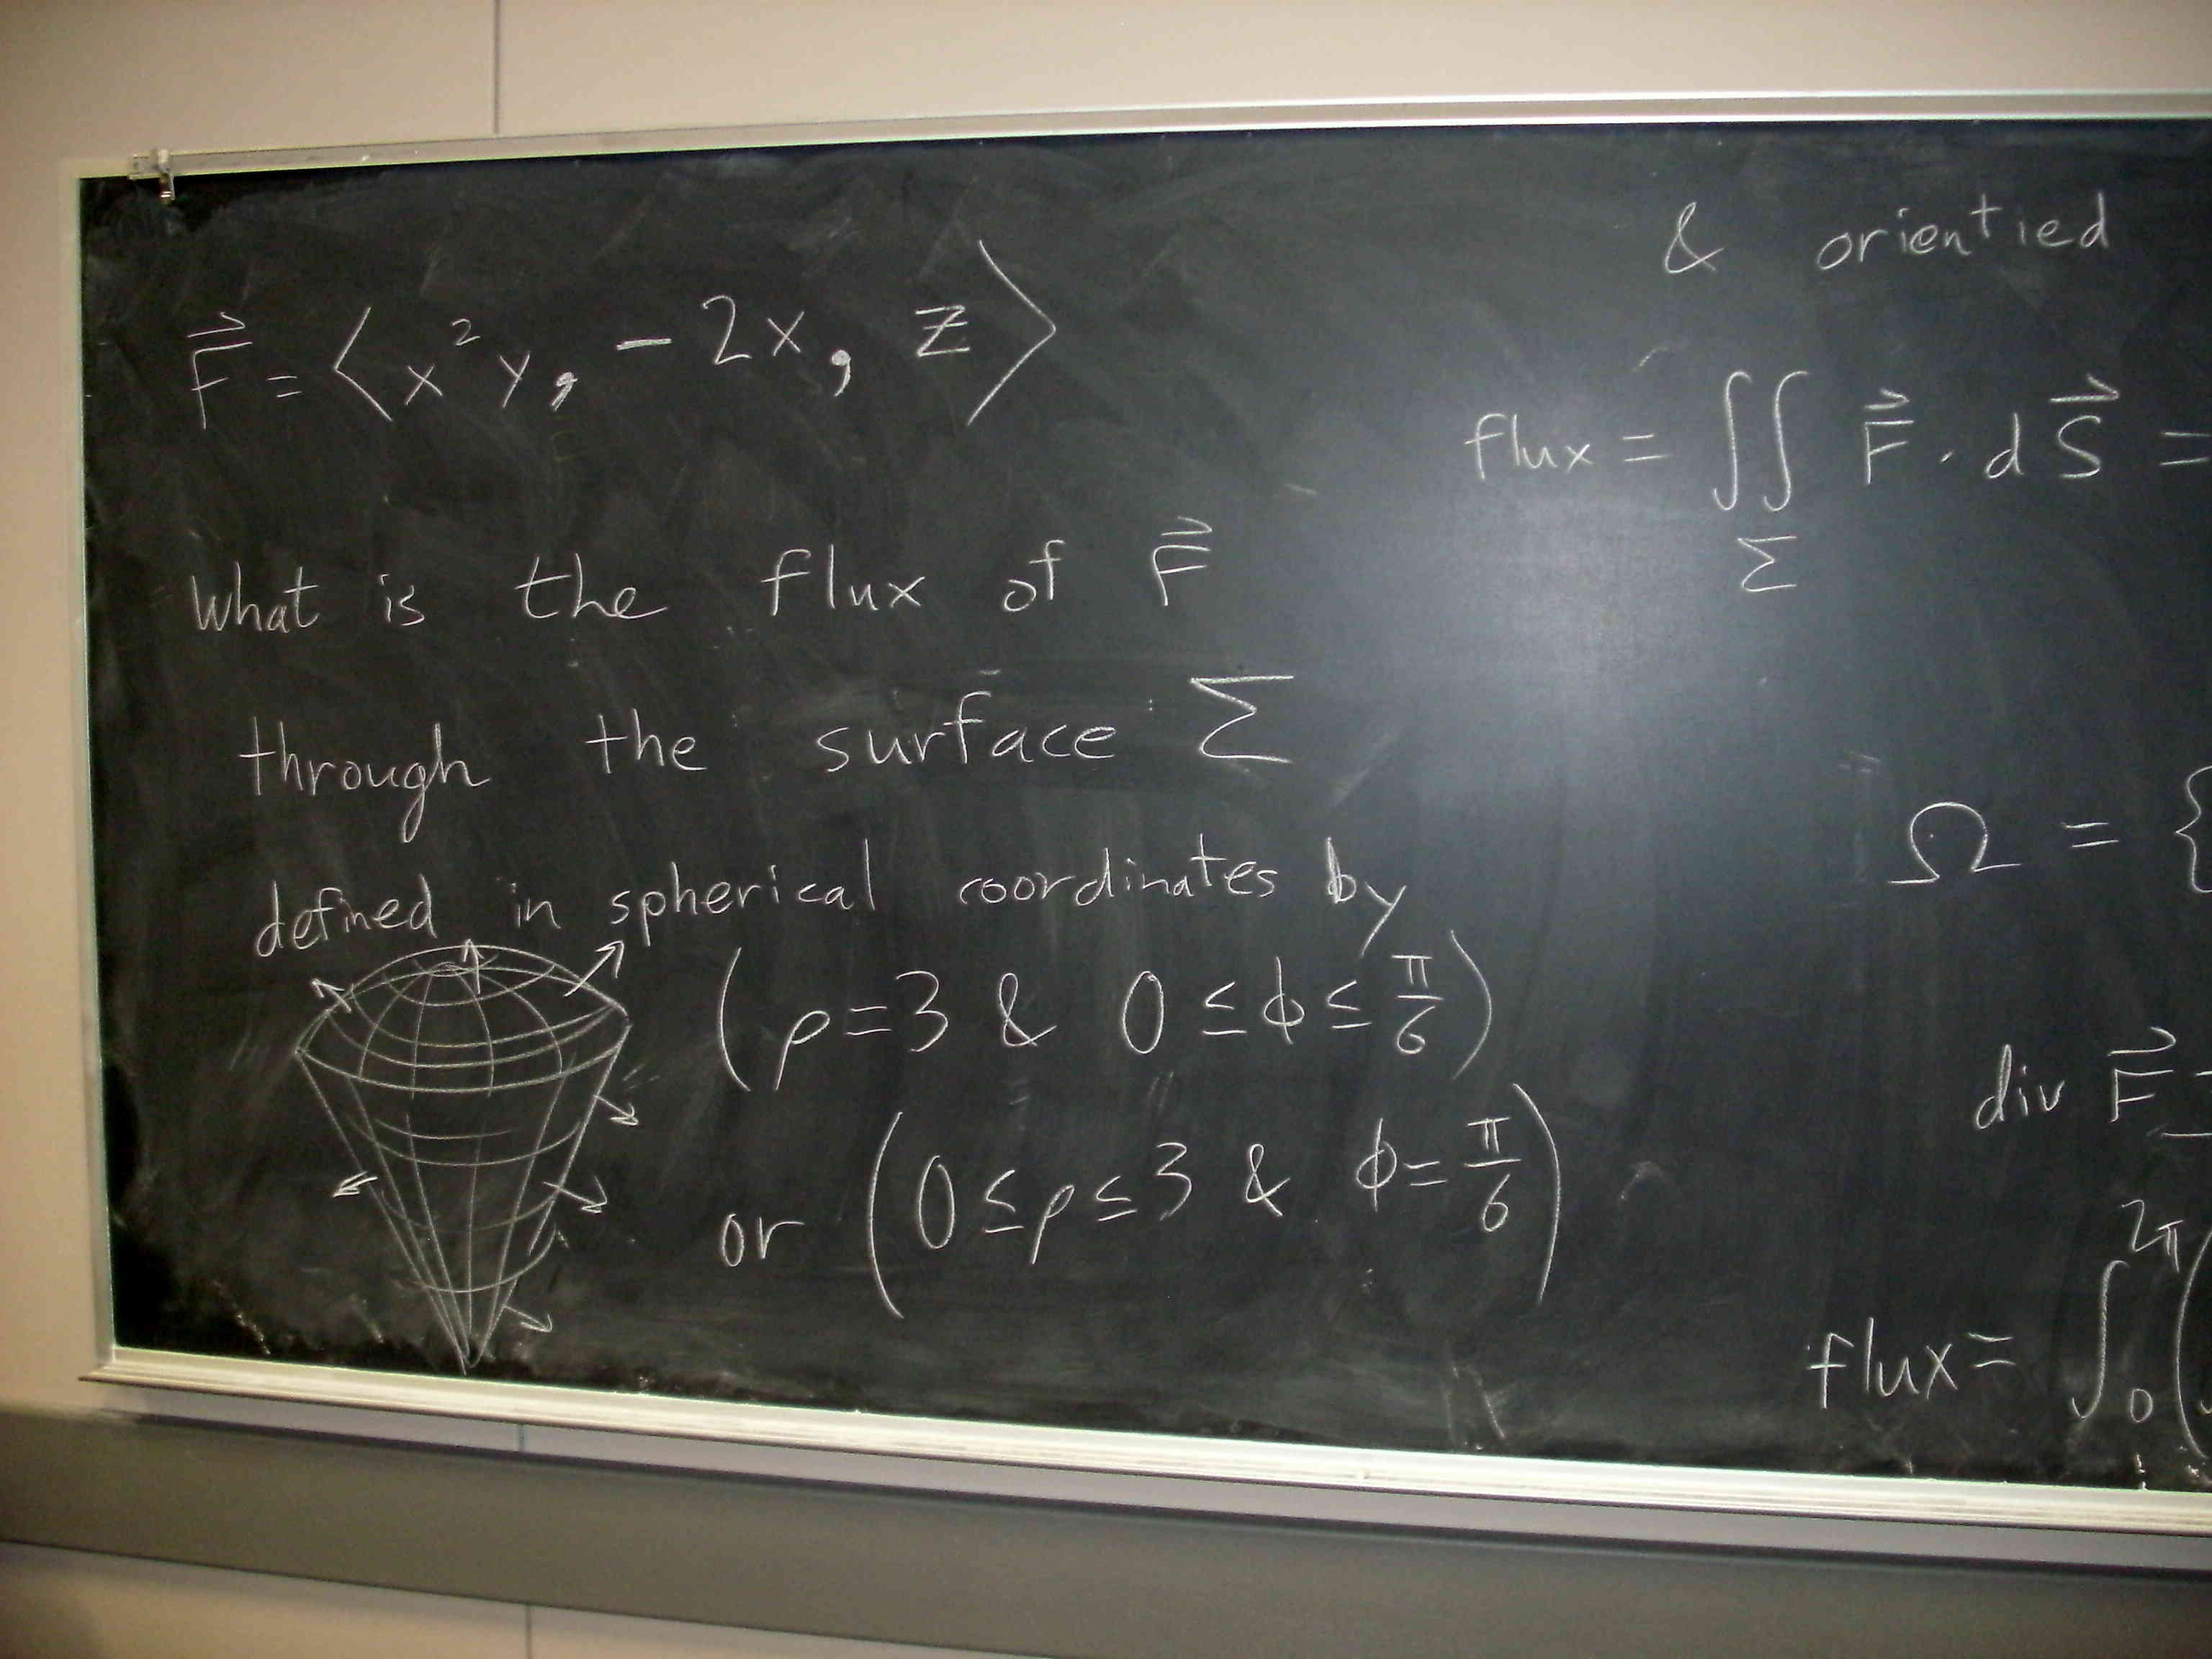 F⃗ = ⟨x²y, -2x, z⟩
What is the flux of F⃗
through the surface Σ
defined in spherical coordinates by
(ρ=3 & 0 ≤ ϕ ≤ π/6)
or (0 ≤ ρ ≤ 3 & ϕ = π/6)
& orientied
flux = ∬_Σ F⃗ · dS⃗ =
Ω = {
div F⃗
flux = ∫₀^{2π} (